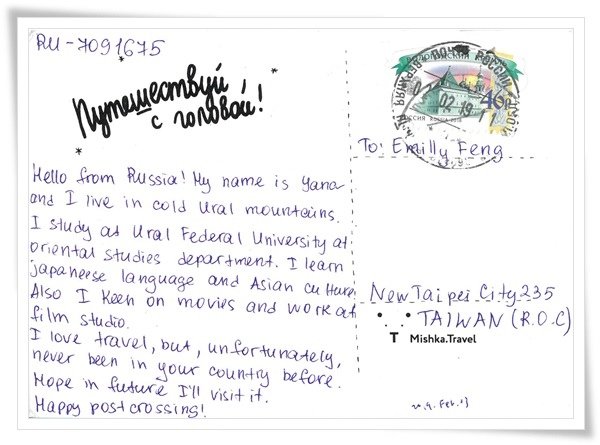 RU-7091675
Путешествуй
с головой!
Hello from Russia! My name is Yana
and I live in cold Ural mountains.
I study at Ural Federal University at
oriental studies department. I learn
japaneese language and Asian culture.
Also I keen on movies and work at
film studio.
I love travel, but, unfortunately,
never been in your country before.
Hope in future I'll visit it.
Happy postcrossing!
ПОЧТА РОССИИ
46
РОССИЯ RUSSIA 2018
02 19 11
To: Emilly Feng
New Taipei City 235
TAIWAN (R.O.C)
T Mishka.Travel